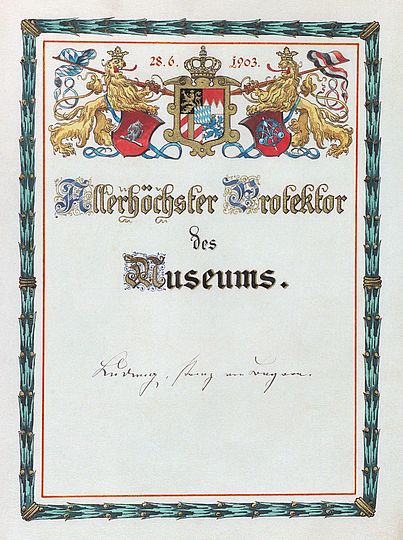 28.6. 1903.
Allerhöchster Protektor
des
Museums.
Ludwig, Prinz von Bayern.